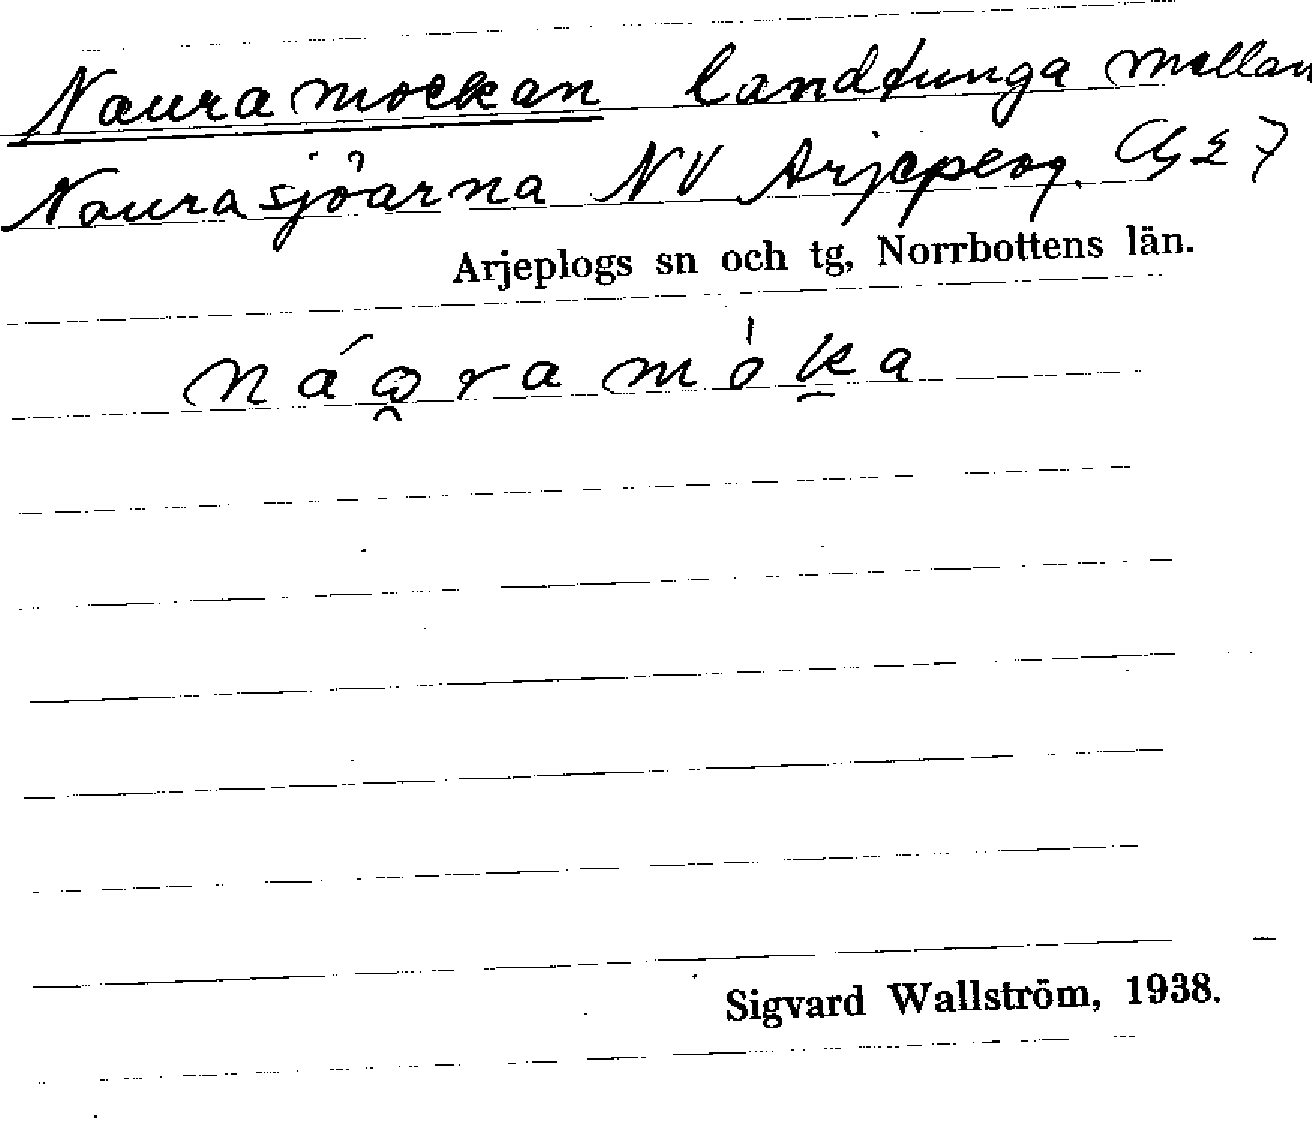 Nauramockan landtunga mellan
Naurasjöarna NV Arjeplog. G 27
Arjeplogs sn och tg, Norrbottens län.
náω̯ramò́k̠a
Sigvard Wallström, 1938.